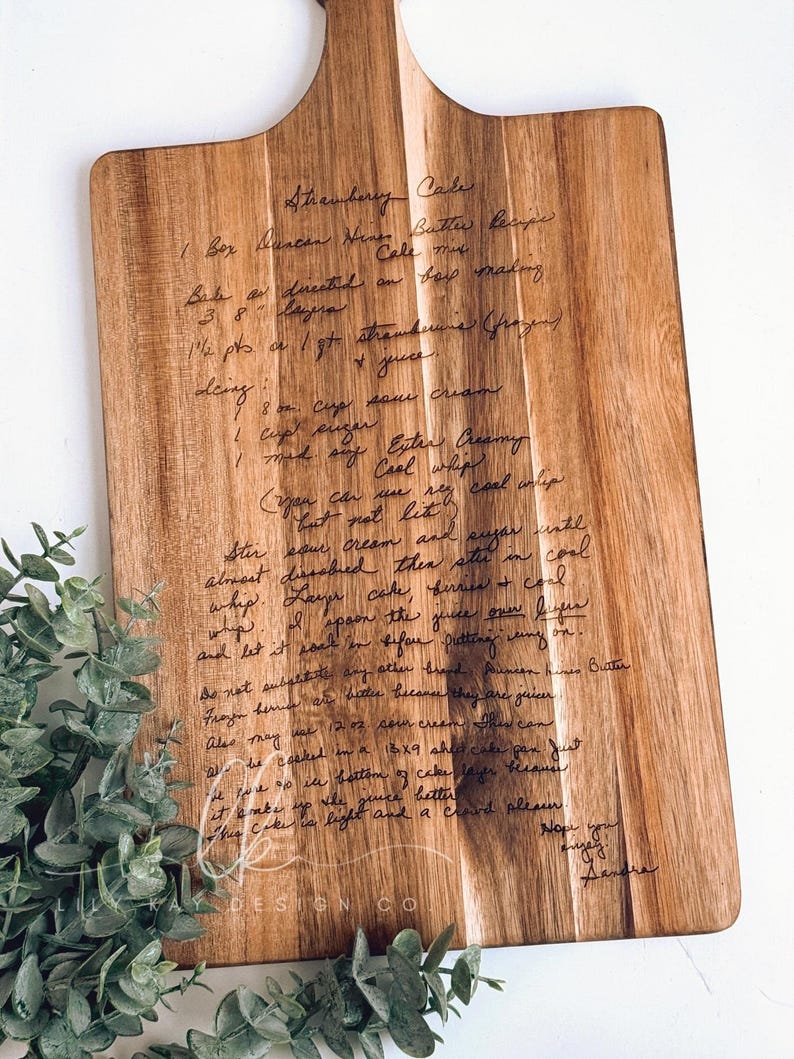 Strawberry Cake
1 Box Duncan Hines Butter Recipe
Cake mix
Bake as directed on box making
3 8" layers
1½ pts. or 1 qt strawberries (frozen)
& juice.
Icing:
1 8 oz. cup sour cream
1 cup sugar
1 med. size Extra Creamy
Cool whip
(You can use reg cool whip
but not lite)
Stir sour cream and sugar until
almost dissolved then stir in cool
whip. Layer cake, berries & cool
whip. I spoon the juice over layers
and let it soak in before putting icing on.
Do not substitute any other brand. Duncan Hines Butter
Frozen berries are better because they are juicer
Also may use 12 oz. sour cream. This can
also be cooked in a 13x9 sheet cake pan Just
be sure to ice bottom of cake layer because
it soaks up the juice better.
This cake is light and a crowd pleaser.
Hope you
enjoy.
Sandra
lk
LILY KAY DESIGN CO.